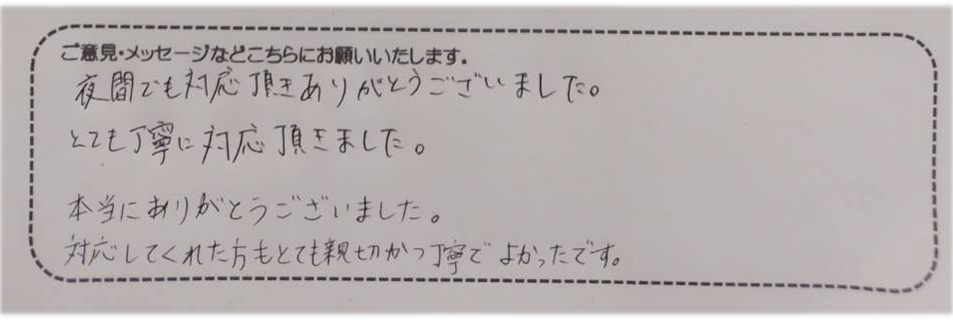 ご意見・メッセージなどこちらにお願いいたします。
夜間でも対応頂きありがとうございました。
とても丁寧に対応頂きました。
本当にありがとうございました。
対応してくれた方もとても親切かつ丁寧でよかったです。